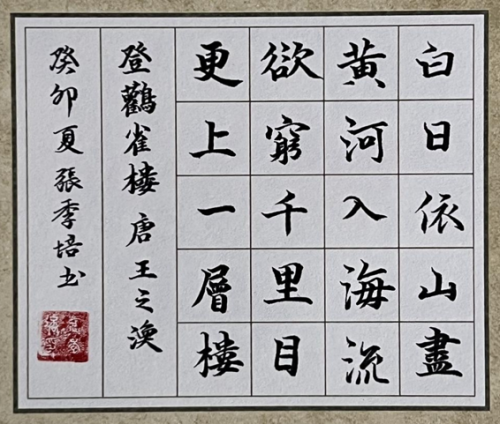 白日依山盡
黃河入海流
欲窮千里目
更上一層樓
登鸛雀樓 唐 王之渙
癸卯夏張季培书